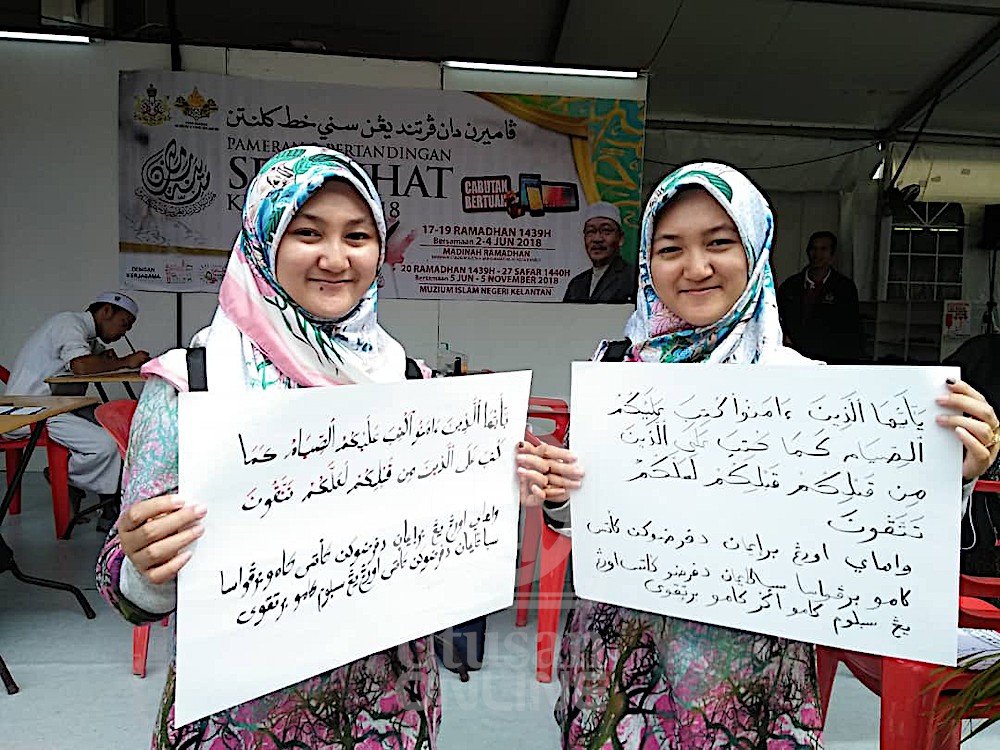 ڤاميرن دان ڤرتنديڠن سني خط کلنتن
PAMERAN PERTANDINGAN
SE HAT
K 18
CABUTAN
BERTUAH
17-19 RAMADHAN 1439H
Bersamaan 2-4 JUN 2018
MADINAH RAMADHAN
20 RAMADHAN 1439H - 27 SAFAR 1440H
Bersamaan 5 JUN - 5 NOVEMBER 2018
MUZIUM ISLAM NEGERI KELANTAN
DENGAN
KERJASAMA
يأيها الذين ءامنوا كتب عليكم الصيام كما
كتب على الذين من قبلكم لعلكم تتقون
واهاي اورڠ يڠ برايمان دفرضوکن کأتس کامو برڤواسا
سباݢايمان دفرضوکن کأتس اورڠ يڠ سبلوم کامو برتقوى
يأيها الذين ءامنوا كتب عليكم
الصيام كما كتب على الذين
من قبلكم قبلكم لعلكم
تتقون
واهاي اورڠ برايمان دفرضوکن کأتس
کامو برڤواسا سباݢايمان دفرضو کأتس اورڠ
يڠ سبلوم کامو اݢر کامو برتقوى
utusan
ONLINE